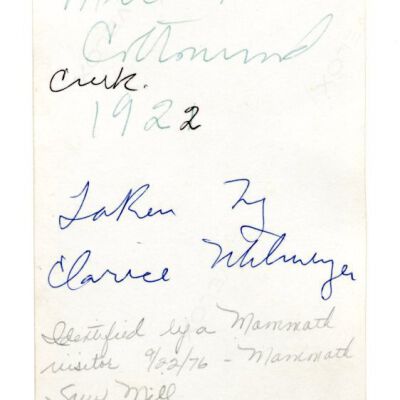 Cottonwood
Creek.
1922
Taken by
Clarice
Identified by a Mammoth
visitor 9/02/76 - Mammoth
Saw Mill